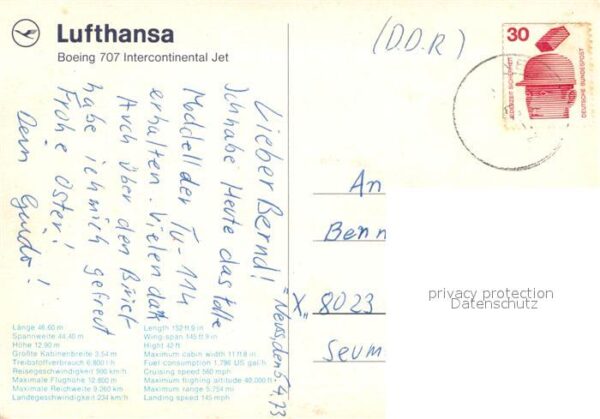 Lufthansa
Boeing 707 Intercontinental Jet
(D.D.R)
30
JEDERZEIT SICHERHEIT
DEUTSCHE BUNDESPOST
Neuss, den 5.4.73
Lieber Bernd!
Ich habe Heute das tolle
Modell der Tu-114
erhalten. Vielen dank
Auch über den Brief
habe ich mich gefreut
Frohe Oster!
Dein Guido!
An
Benn
X 8023
Seum
privacy protection
Datenschutz
Länge 46.60 m
Spannweite 44.40 m
Höhe 12.90 m
Größte Kabinenbreite 3.54 m
Treibstoffverbrauch 6.800 l/h
Reisegeschwindigkeit 900 km/h
Maximale Flughöhe 12.800 m
Maximale Reichweite 9.260 km
Landegeschwindigkeit 234 km/h
Length 152 ft 9 in
Wing span 145 ft 9 in
Hight 42 ft
Maximum cabin width 11 ft 8 in
Fuel consumption 1.796 US gal/h
Cruising speed 560 mph
Maximum flighing altitude 40.000 ft
Maximum range 5.754 mi
Landing speed 145 mph